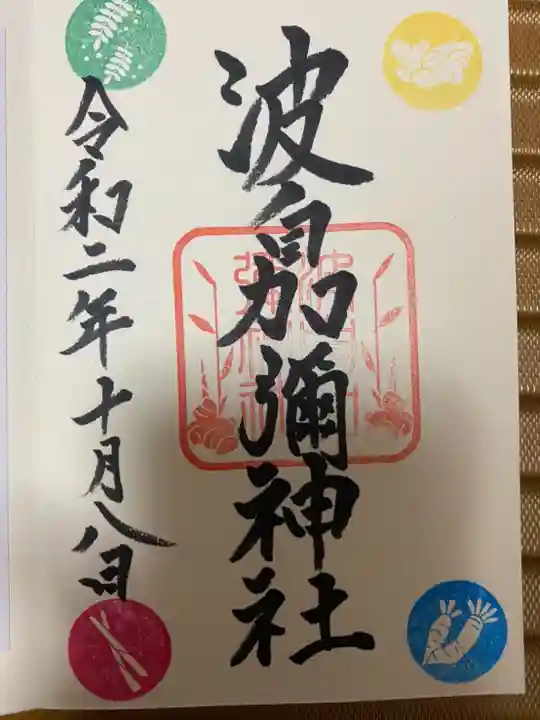 波自加彌神社
令和二年十月八日